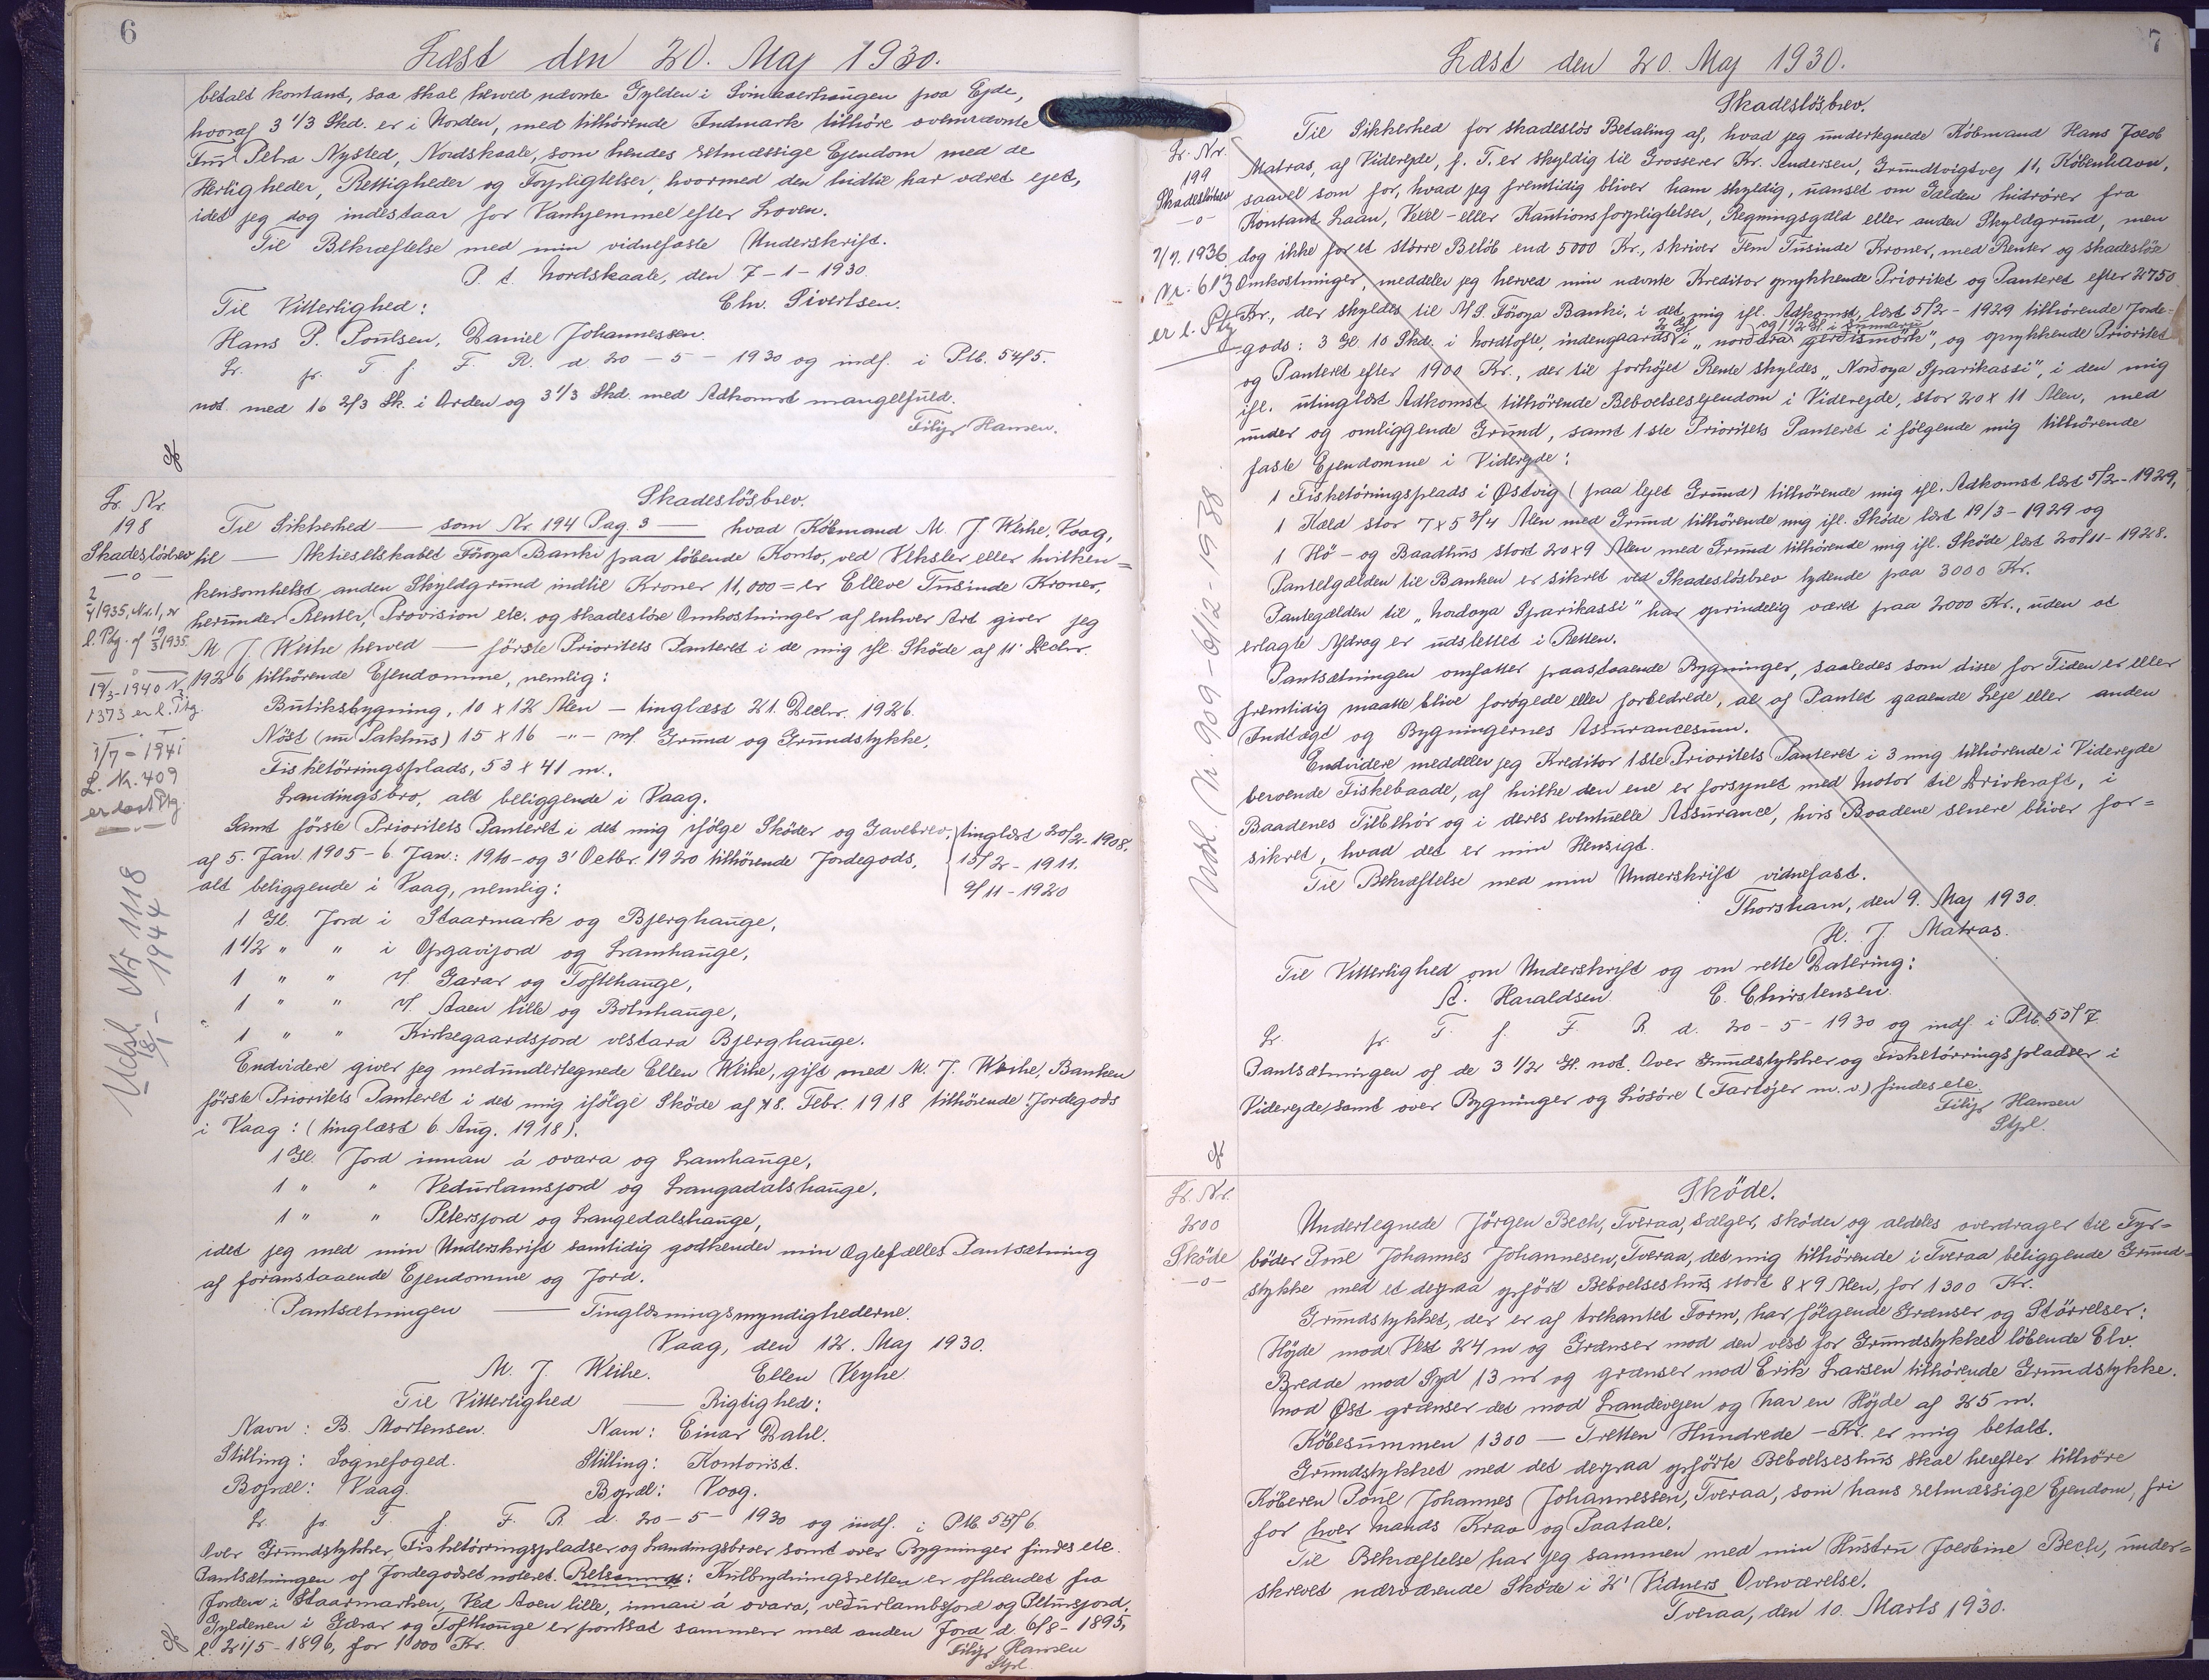 6
Læst den 20. Maj 1930.
betalt kontant, saa skal herved nævnte Gylden i paa Ejde,
hvoraf 3 1/3 Skd. er i Norden, med tilhørende Indmark tilhøre ovennævnte
Petra Nysted, Nordskaale, som hendes retmæssige Ejendom med de
Herligheder, Rettigheder og Forpligtelser, hvormed den hidtil har været ejet,
idet jeg dog indestaar for Vanhjemmel efter Loven.
Til Bekræftelse med min vidnefaste Underskrift.
P. t. Nordskaale, den 7-1-1930.
Til Vitterlighed: Chr. Sivertsen.
Hans P. Poulsen, Daniel Johannessen.
Lr. fr. T. f. F. R. d. 20-5-1930 og indf. i Ptb. 54/5.
not. med 16 2/3 Sk. i Orden og 3 1/3 Skd. med Adkomst mangelfuld.
Filip Hansen.
Lr. Nr.
198
Skadeslösbrev
—o—
2/4 1935, Nr. 1, er
l. Ptg. af 19/3 1935.
19/3-1940 N.
1373 er l. Ptg.
1/7-1941
L. Nr. 409
er læst Ptg.
Udsl. Nr 1118
18/1-1944
Skadeslösbrev.
Til Sikkerhed — som Nr. 194 Pag. 3 — hvad Köbmand M. J. Weihe, Vaag,
til — Aktieselskabet Föroya Banki paa löbende Konto, ved Veksler eller hvilken=
kensomhelst anden Skyldgrund indtil Kroner 11,000 = er Elleve Tusinde Kroner,
herunder Renter, Provision etc. og skadeslöse Omkostninger af enhver Art giver jeg
M. J. Weihe herved — förste Prioritets Panteret i de mig ifl. Sköde af 11' Decbr.
1926 tilhörende Ejendomme, nemlig:
Butiksbygning, 10 x 12 Alen – tinglæst 21. Decbr. 1926.
Nöst (nu Pakhus) 15 x 16 -"- m/. Grund og Grundstykke,
Fisketörringsplads, 53 x 41 m.,
Landingsbro, alt beliggende i Vaag.
Samt förste Prioritets Panteret i det mig ifölge Sköder og Gavebrev, tinglæst 20/2-1908.
af 5. Jan 1905 – 6. Jan: 1910 – og 3' Octbr. 1920 tilhörende Jordegods, 15/2-1911.
alt beliggende i Vaag, nemlig: 9/11-1920
1 Gl. Jord i Staarmark og Bjerghauge,
1 1/2 " " i Opgavijord og Lamhauge,
1 " " v/. Garar og Tofthauge,
1 " " v/. Aaen lille og Botnhauge,
1 " " Kirkegaardsjord vestara Bjerghauge.
Endvidere giver jeg medundertegnede Ellen Weihe, gift med M. J. Weihe, Banken
förste Prioritets Panteret i det mig ifölge Sköde af 18. Febr. 1918 tilhörende Jordegods
i Vaag: (tinglæst 6. Aug. 1918).
1 Gl. Jord innan á ovara og Lamhauge,
1 " " Vedurlamsjord og Langadalshauge,
1 " " Petersjord og Langedalshauge,
idet jeg med min Underskrift samtidig godkender min Ægtefælles Pantsætning
af foranstaaende Ejendomme og Jord.
Pantsætningen — Tinglæsningsmyndighederne.
Vaag, den 12. Maj 1930.
M. J. Weihe. Ellen Veyhe
Til Vitterlighed — Rigtighed:
Navn: B. Mortensen. Navn: Einar Dahl.
Stilling: Sognefoged. Stilling: Kontorist.
Bopæl: Vaag. Bopæl: Vaag.
Lr. fr. T. f. F. R. d. 20-5-1930 og indf. i Ptb. 55/6.
Over Grundstykker, Fisketörringspladser og Landingsbroer samt over Bygninger findes etc.
Pantsætningen af Jordegodset noteret. Retsanm.: Kulbrydningsretten er afhændet fra
Jorden i Staarmarken, Ved Aaen lille, innan á ovara, veðurlambsjord og Petursjord.
Gyldenen i Garar og Tofthauge er pantsat sammen med anden Jord d. 6/8-1895,
l. 21/5-1896, for 1000 Kr.
Filip Hansen
Stpl.
7
Læst den 20. Maj 1930.
Lr. Nr.
199
Skadeslösbrev
—o—
7/7. 1936
Nr. 613
er l. Ptg
Udsl. Nr. 909 - 6/12-1938
Skadeslösbrev.
Til Sikkerhed for skadeslös Betaling af, hvad jeg undertegnede Köbmand Hans Jacob
Matras, af Viderejde, p. T. er skyldig til Grosserer Kr. Andersen, Grundtvigsvej 11, København,
saavel som for, hvad jeg fremtidig bliver ham skyldig, uanset om Gælden hidrörer fra
Kontant Laan, Vexel- eller Kautionsforpligtelser, Regningsgæld eller anden Skyldgrund, men
dog ikke for et större Belöb end 5000 Kr., skriver Fem Tusinde Kroner, med Renter og skadeslöse
Omkostninger, meddeler jeg herved min nævnte Kreditor oprykkende Prioritet og Panteret efter 2750
Kr., der skyldes til A/S. Föroya Banki, i det mig ifl. Adkomst, læst 5/2-1929 tilhörende Jorde=
gods: 3 Gl. 10 Skd. i Nordtofte, indengaards 2 Gl. i „norðara gerðismörk", og 1 1/2 Gl. i og oprykkende Prioritet
og Panteret efter 1900 Kr., der til forhöjet Rente skyldes „Norðoya Sparikassi", i den mig
ifl. utinglæst Adkomst tilhörende Beboelsesejendom i Viderejde, stor 20 x 11 Alen, med
under og omliggende Grund, samt 1ste Prioritets Panteret i fölgende mig tilhörende
faste Ejendomme i Viderejde:
1 Fisketörringsplads i Østvig (paa lejet Grund) tilhörende mig ifl. Adkomst læst 5/2-1929,
1 Kæld stor 7 x 5 3/4 Alen med Grund tilhörende mig ifl. Sköde læst 19/3-1929 og
1 Hö- og Baadhus stort 20 x 9 Alen med Grund tilhörende mig ifl. Sköde læst 20/11-1928.
Pantegælden til Banken er sikret ved Skadeslösbrev lydende paa 3000 Kr.
Pantegælden til „Nordoya Sparikassi" har oprindelig været paa 2000 Kr., uden at
erlagte Afdrag er udslettet i Retten.
Pantsætningen omfatter paastaaende Bygninger, saaledes som disse for Tiden er eller
fremtidig maatte blive forøgede eller forbedrede, al af Pantet gaaende Leje eller anden
Indtægt og Bygningernes Assurancesum.
Endvidere meddeler jeg Kreditor 1ste Prioritets Panteret i 3 mig tilhörende i Viderejde
beroende Fiskebaade, af hvilke den ene er forsynet med Motor til Drivkraft, i
Baadenes Tilbehör og i deres eventuelle Assurance, hvis Baadene senere bliver for=
sikret, hvad det er min Hensigt.
Til Bekræftelse med min Underskrift vidnefast.
Thorshavn, den 9. Maj 1930.
H. J. Matras.
Til Vitterlighed om Underskrift og om rette Datering:
A. Haraldsen. E. Christensen.
Lr. fr. T. f. F. R. d. 20-5-1930 og indf. i Ptb. 55/7.
Pantsætningen af de 3 1/2 Gl. not. Over Grundstykker og Fisketörringspladser i
Viderejde, samt over Bygninger og Lösöre (Fartöjer m.v.) findes etc.
Filip Hansen
Stpl.
Lr. Nr.
200
Sköde
—o—
Sköde.
Undertegnede Jörgen Bech, Tveraa, sælger, sköder og aldeles overdrager til Fyr=
böder Poul Johannes Johannesen, Tveraa, det mig tilhörende i Tveraa beliggende Grund=
stykke med et derpaa opfört Beboelseshus, stort 8 x 9 Alen, for 1300 Kr.
Grundstykket, der er af trekantet Form, har fölgende Grænser og Störrelser:
Höjde mod Vest 24 m og Grænser mod den vest for Grundstykket löbende Elv.
Bredde mod Syd 13 m og grænser mod Erik Larsen tilhörende Grundstykke.
Mod Øst grænser det mod Landevejen og har en Höjde af 25 m.
Köbesummen 1300 – Tretten Hundrede – Kr. er mig betalt.
Grundstykket med det derpaa opförte Beboelseshus skal herefter tilhöre
Köberen Poul Johannes Johannessen, Tveraa, som hans retmæssige Ejendom, fri
for hver Mands Krav og Paatale.
Til Bekræftelse har jeg sammen med min Hustru Jacobine Bech, under=
skrevet nærværende Sköde i 2' Vidners Overværelse.
Tveraa, den 10. Marts 1930.